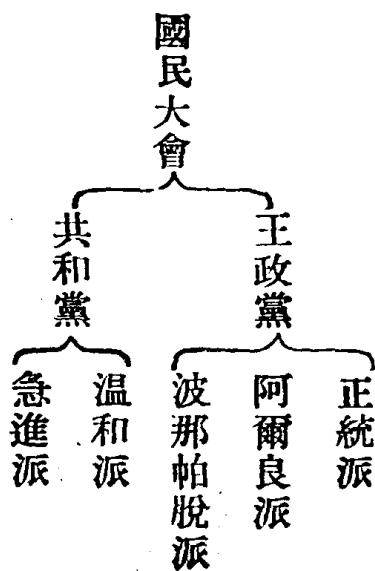 國民大會
王政黨
正統派
阿爾良派
波那帕脫派
共和黨
温和派
急進派